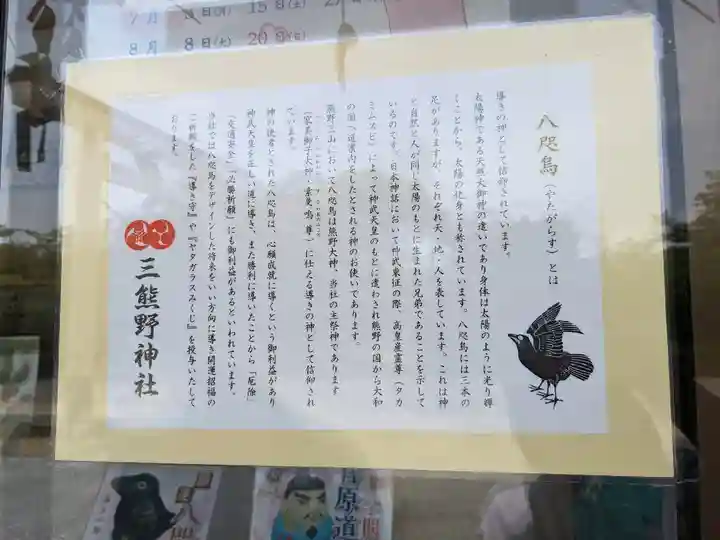 7月
8日(月)
15日(土)
8月
8日(七)
20日(日)
八咫烏(やたがらす)とは
導きの神として信仰されています。
太陽神である天照大御神の遣いであり身体は太陽のように光り輝
くことから、太陽の化身とも称されています。八咫烏には三本の
足がありますが、それぞれ天・地・人を表しています。これは神
と自然と人が同じ太陽のもとに生まれた兄弟であることを示して
いるのです。日本神話において神武東征の際、高皇産霊尊(タカ
ミムスビ)によって神武天皇のもとに遣わされ熊野の国から大和
の国へ道案内をしたとされる神のお使いであります。
熊野三山において八咫烏は熊野大神、当社の主祭神であります
「家都御子大神・素戔嗚尊」に仕える導きの神として信仰され
ています。
神の使者とされた八咫烏は、心願成就に導くという御利益があり
神武天皇を正しい道に導き、また勝利に導いたことから「厄除」
「交通安全」「必勝祈願」にも御利益があるといわれています。
当社では八咫烏をデザインした将来をいい方向に導き開運招福の
ご祈願をした『導き守』や『ヤタガラスみくじ』を授与いたして
おります。
三熊野神社
原道